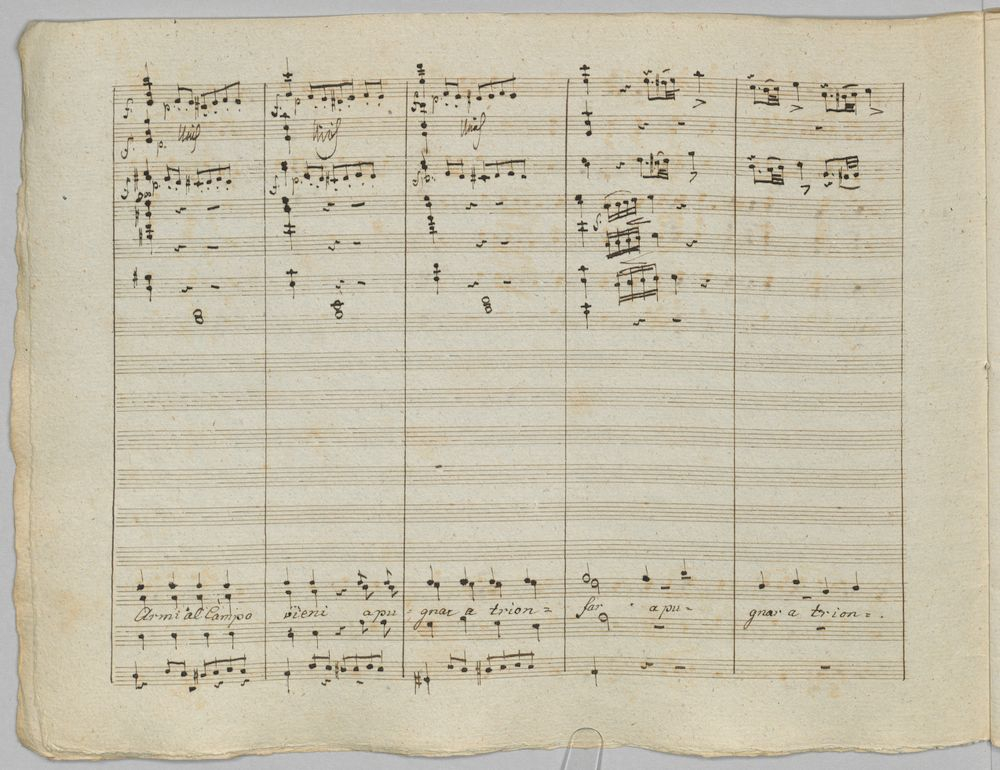 p. p. p.
Unis Unis Unis
p. p. p.
Armi al Campo vieni a pu = gnar a trion = far a pu = gnar a trion = .